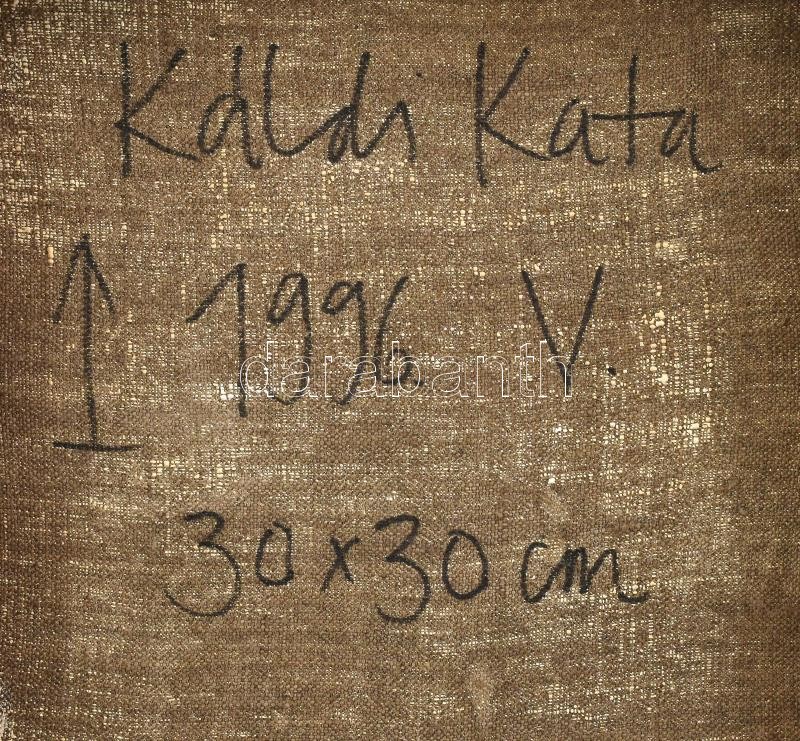 Káldi Kata
↑ 1996 V.
darabanth
30x30 cm